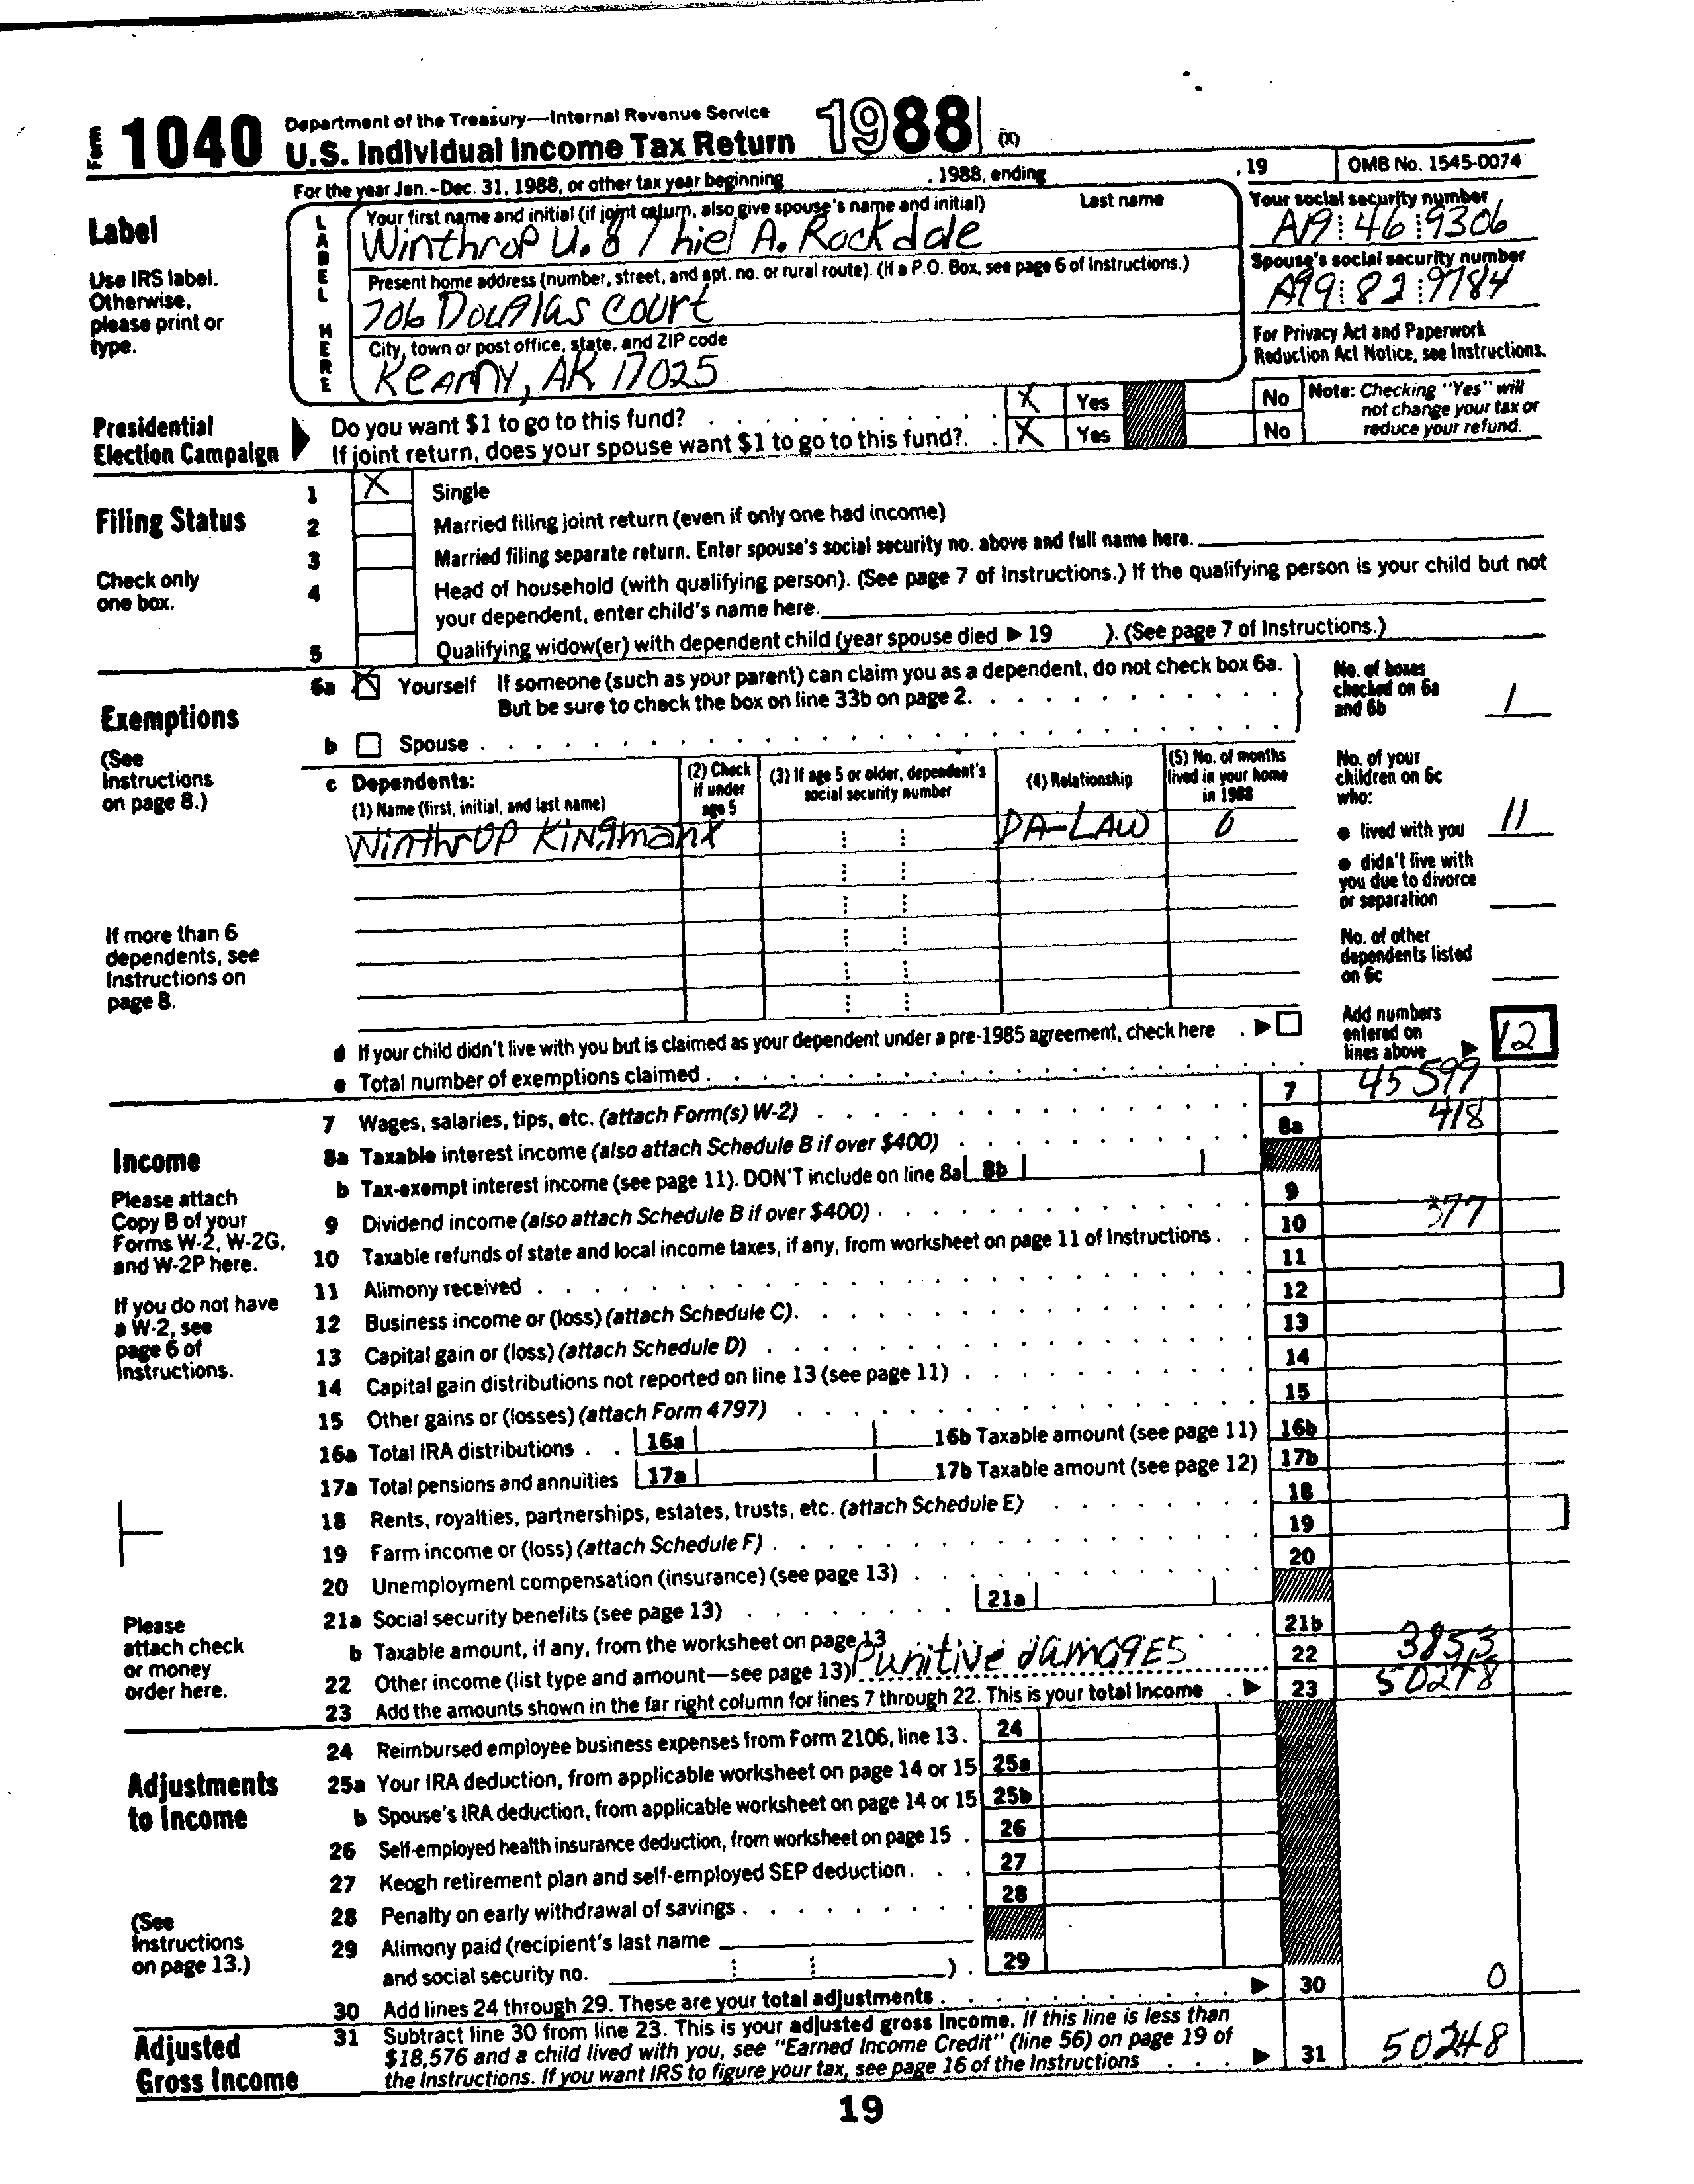 Form 1040 Department of the Treasury—Internal Revenue Service
U.S. Individual Income Tax Return 1988 (X)
For the year Jan.-Dec. 31, 1988, or other tax year beginning , 1988, ending , 19 OMB No. 1545-0074
Label
Use IRS label.
Otherwise,
please print or
type.
LABEL HERE
Your first name and initial (if joint return, also give spouse's name and initial) Last name
Winthrop U. & Thiel A. Rockdale
Your social security number
A19 46 9306
Present home address (number, street, and apt. no. or rural route). (If a P.O. Box, see page 6 of Instructions.)
706 Douglas Court
Spouse's social security number
A99 82 9784
City, town or post office, state, and ZIP code
Kearny, AK 17025
For Privacy Act and Paperwork
Reduction Act Notice, see Instructions.
Presidential
Election Campaign
Do you want $1 to go to this fund? X Yes No
If joint return, does your spouse want $1 to go to this fund? X Yes No
Note: Checking "Yes" will
not change your tax or
reduce your refund.
Filing Status
Check only
one box.
1 X Single
2 Married filing joint return (even if only one had income)
3 Married filing separate return. Enter spouse's social security no. above and full name here.
4 Head of household (with qualifying person). (See page 7 of Instructions.) If the qualifying person is your child but not
your dependent, enter child's name here.
5 Qualifying widow(er) with dependent child (year spouse died ▶ 19 ). (See page 7 of Instructions.)
Exemptions
(See
Instructions
on page 8.)
6a X Yourself If someone (such as your parent) can claim you as a dependent, do not check box 6a.
But be sure to check the box on line 33b on page 2.
b Spouse
No. of boxes
checked on 6a
and 6b 1
c Dependents:
(1) Name (first, initial, and last name)
(2) Check
if under
age 5
(3) If age 5 or older, dependent's
social security number
(4) Relationship
(5) No. of months
lived in your home
in 1988
Winthrop Kingman X DA-LAW 6
No. of your
children on 6c
who:
● lived with you 11
● didn't live with
you due to divorce
or separation
No. of other
dependents listed
on 6c
If more than 6
dependents, see
Instructions on
page 8.
d If your child didn't live with you but is claimed as your dependent under a pre-1985 agreement, check here ▶
e Total number of exemptions claimed
Add numbers
entered on
lines above ▶ 12
Income
Please attach
Copy B of your
Forms W-2, W-2G,
and W-2P here.
If you do not have
a W-2, see
page 6 of
Instructions.
Please
attach check
or money
order here.
7 Wages, salaries, tips, etc. (attach Form(s) W-2) 7 45599
8a Taxable interest income (also attach Schedule B if over $400) 8a 418
b Tax-exempt interest income (see page 11). DON'T include on line 8a 8b
9 Dividend income (also attach Schedule B if over $400) 9 377
10 Taxable refunds of state and local income taxes, if any, from worksheet on page 11 of Instructions 10
11 Alimony received 11
12 Business income or (loss) (attach Schedule C) 12
13 Capital gain or (loss) (attach Schedule D) 13
14 Capital gain distributions not reported on line 13 (see page 11) 14
15 Other gains or (losses) (attach Form 4797) 15
16a Total IRA distributions 16a 16b Taxable amount (see page 11) 16b
17a Total pensions and annuities 17a 17b Taxable amount (see page 12) 17b
18 Rents, royalties, partnerships, estates, trusts, etc. (attach Schedule E) 18
19 Farm income or (loss) (attach Schedule F) 19
20 Unemployment compensation (insurance) (see page 13) 20
21a Social security benefits (see page 13) 21a
b Taxable amount, if any, from the worksheet on page 13 21b
22 Other income (list type and amount—see page 13) Punitive damages 22 3853
23 Add the amounts shown in the far right column for lines 7 through 22. This is your total income ▶ 23 50248
Adjustments
to Income
(See
Instructions
on page 13.)
24 Reimbursed employee business expenses from Form 2106, line 13 24
25a Your IRA deduction, from applicable worksheet on page 14 or 15 25a
b Spouse's IRA deduction, from applicable worksheet on page 14 or 15 25b
26 Self-employed health insurance deduction, from worksheet on page 15 26
27 Keogh retirement plan and self-employed SEP deduction 27
28 Penalty on early withdrawal of savings 28
29 Alimony paid (recipient's last name
and social security no. ) 29
30 Add lines 24 through 29. These are your total adjustments ▶ 30 0
Adjusted
Gross Income
31 Subtract line 30 from line 23. This is your adjusted gross income. If this line is less than
$18,576 and a child lived with you, see "Earned Income Credit" (line 56) on page 19 of
the Instructions. If you want IRS to figure your tax, see page 16 of the Instructions ▶ 31 50248
19